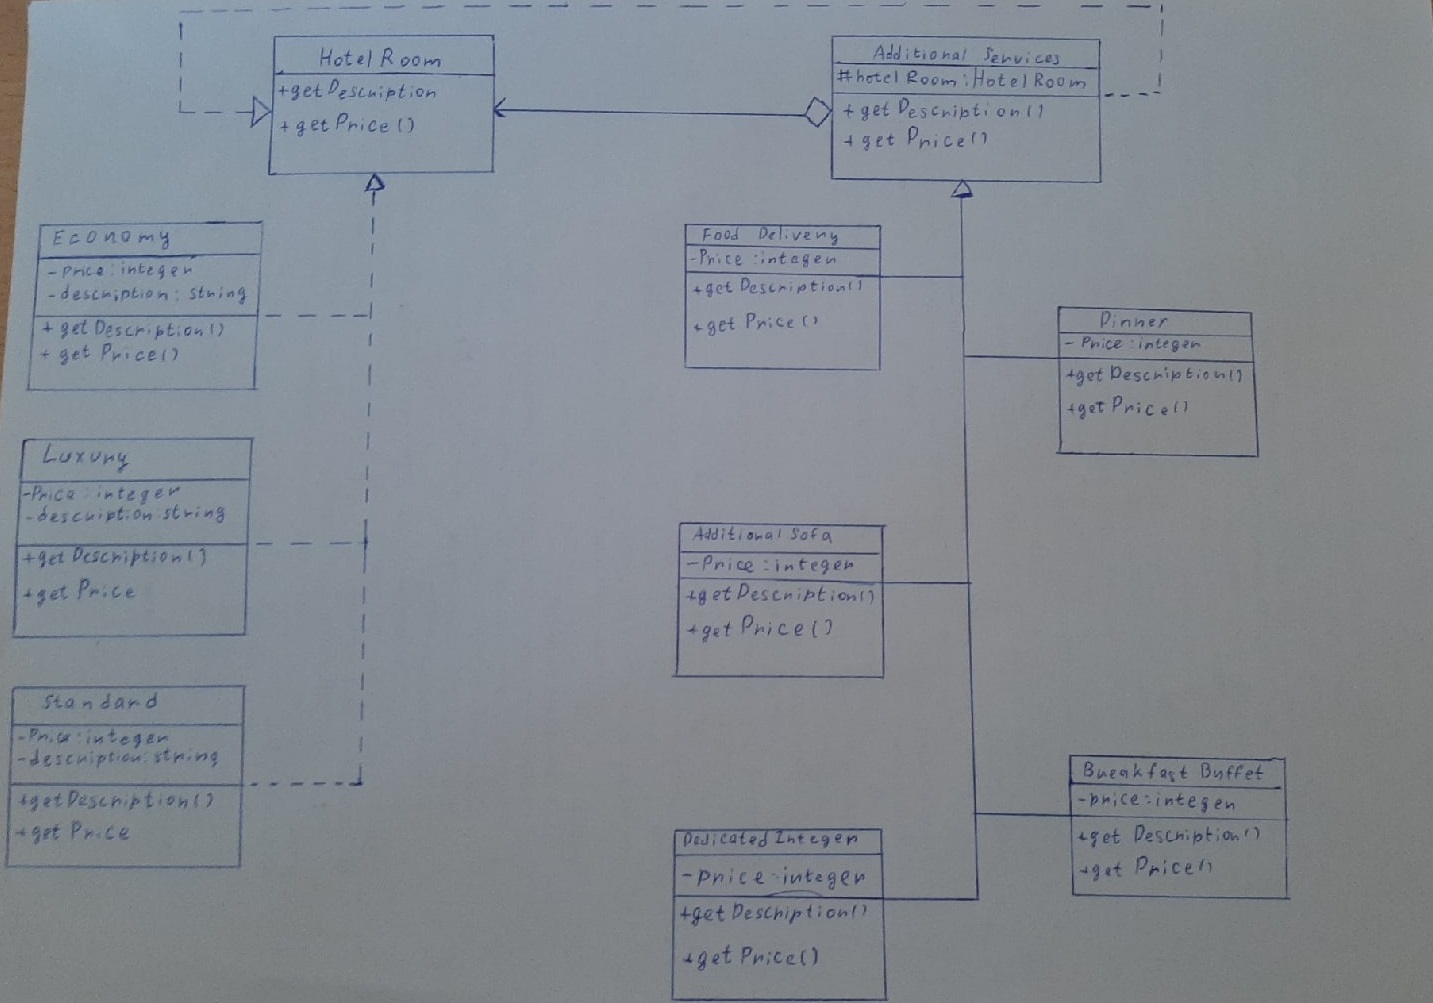 Hotel Room
+getDescription
+getPrice()
Additional Services
#hotelRoom:HotelRoom
+getDescription()
+get Price()
Economy
-Price:integer
-description:string
+getDescription()
+get Price()
Food Delivery
-Price:integer
+getDescription()
+get Price()
Dinner
-Price:integer
+getDescription()
+getPrice()
Luxury
-Price:integer
-description:string
+getDescription()
+get Price
Additional Sofa
-Price:integer
+getDescription()
+getPrice()
Standard
-Price:integer
-description:string
+getDescription()
+get Price
Breakfast Buffet
-price:integer
+get Description()
+get Price()
Dedicated Integer
-price:integer
+getDescription()
+get Price()